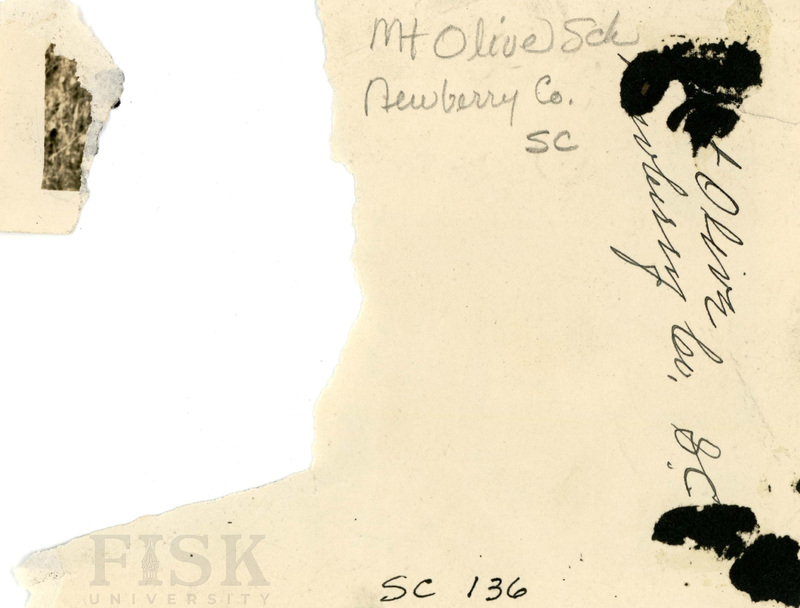 Mt Olive Sch
Newberry Co.
SC
t Olive
wberry Co. S.C.
SC 136
FISK
UNIVERSITY